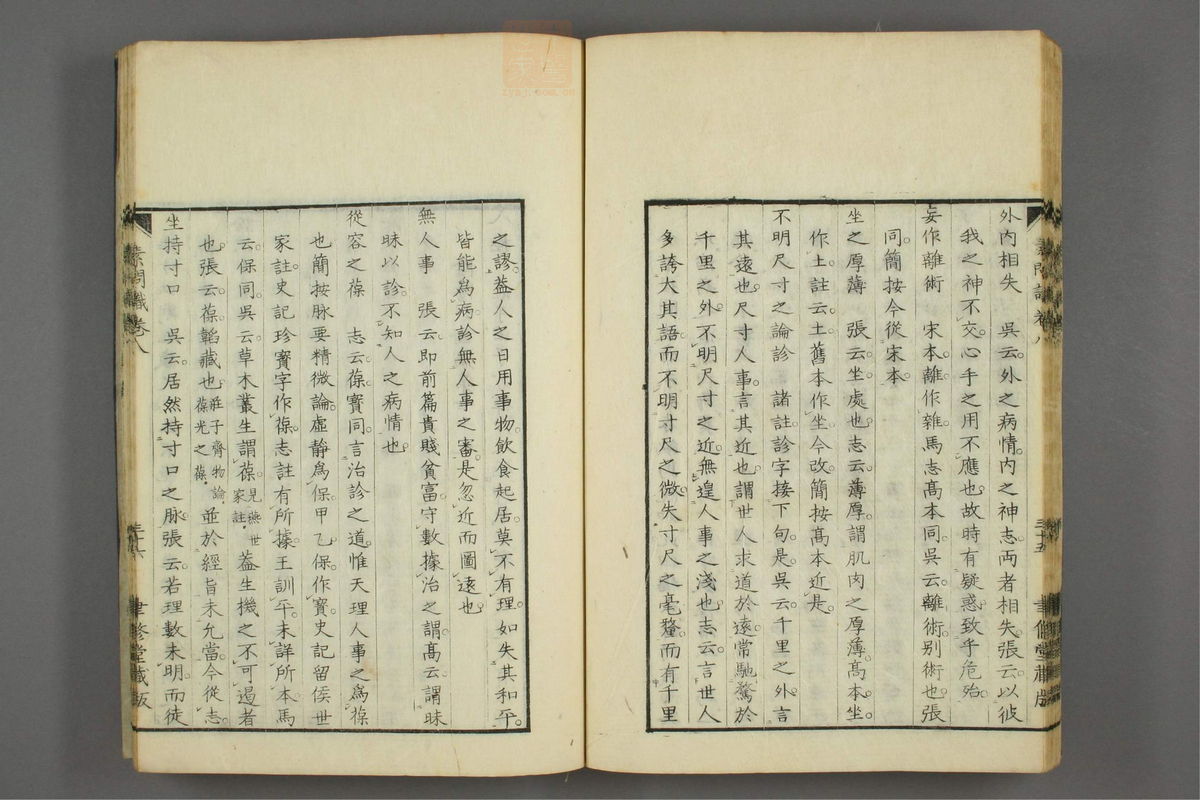 外內相失　吳云外之病情內之神志両者相失張云以彼
我之神不交心手之用不應也故時有疑惑致乎危殆
妄作離術　宋本離作雜馬志髙本同吳云離術别術也張
同簡按今從宋本
坐之厚薄　張云坐處也志云薄厚謂肌肉之厚薄髙本坐
作土註云土舊本作坐今改簡按髙本近是
不明尺寸之論診　諸註診字接下句是吳云千里之外言
其遠也尺寸人事言其近也謂世人求道於遠常馳騖於
千里之外不明尺寸之近無遑人事之淺也志云言世人
多誇大其語而不明寸尺之微失寸尺之毫釐而有千里
素問識卷八
三十五
聿修堂藏版
之謬葢人之日用事物飲食起居莫不有理如失其和平
皆能為病診無人事之審是忽近而圖遠也
無人事　張云即前篇貴賤貧富守數據治之謂髙云謂昧
昧以診不知人之病情也
從容之葆　志云葆寶同言治診之道惟天理人事之為葆
也簡按脉要精微論虛靜為保甲乙保作寶史記留侯世
家註史記珍寶字作葆志註有所據王訓平未詳所本馬
云保同吳云草木叢生謂葆見燕世家註葢生機之不可遏者
也張云葆韜藏也莊子齊物論葆光之葆並於經旨未允當今從志
坐持寸口　吳云居然持寸口之脉張云若理數未明而徒
素問識卷八
三十六
聿修堂藏版